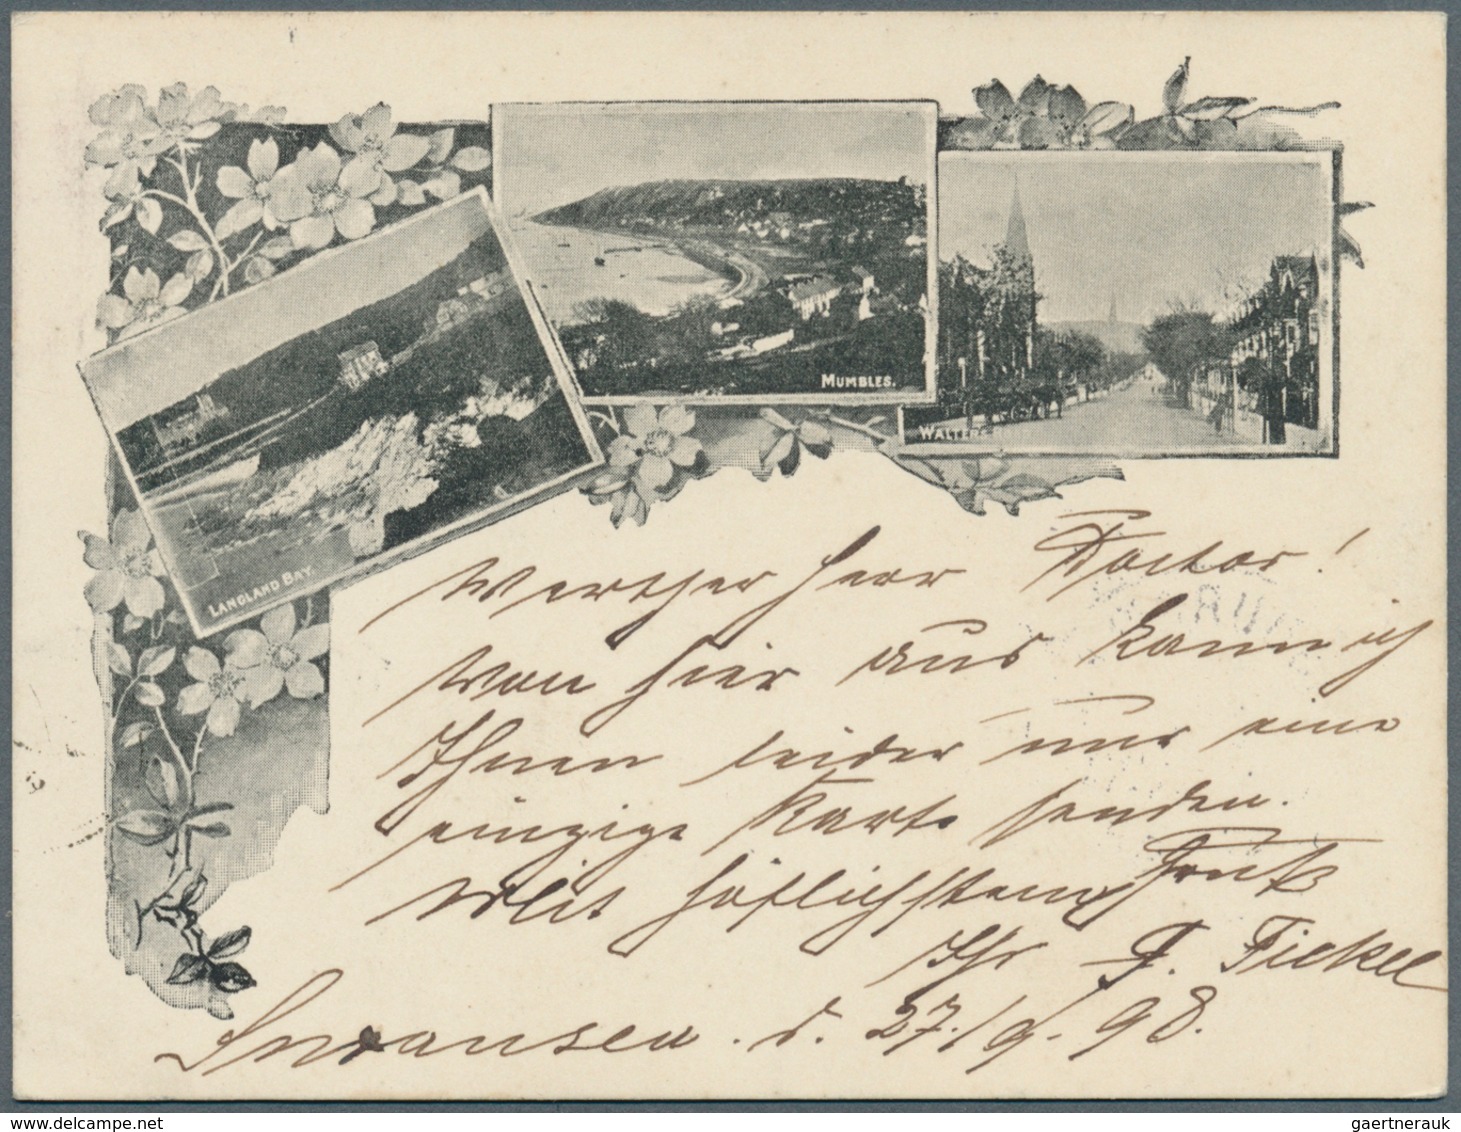 LANGLAND BAY.
MUMBLES.
WALTERS
Werther Herr Doctor!
Von hier aus kann ich
Ihnen leider nur eine
einzige Karte senden.
Mit höflichstem Gruß
Ihr F. Fickel
Swansea. d. 27./9. 98.
gaertnerauk